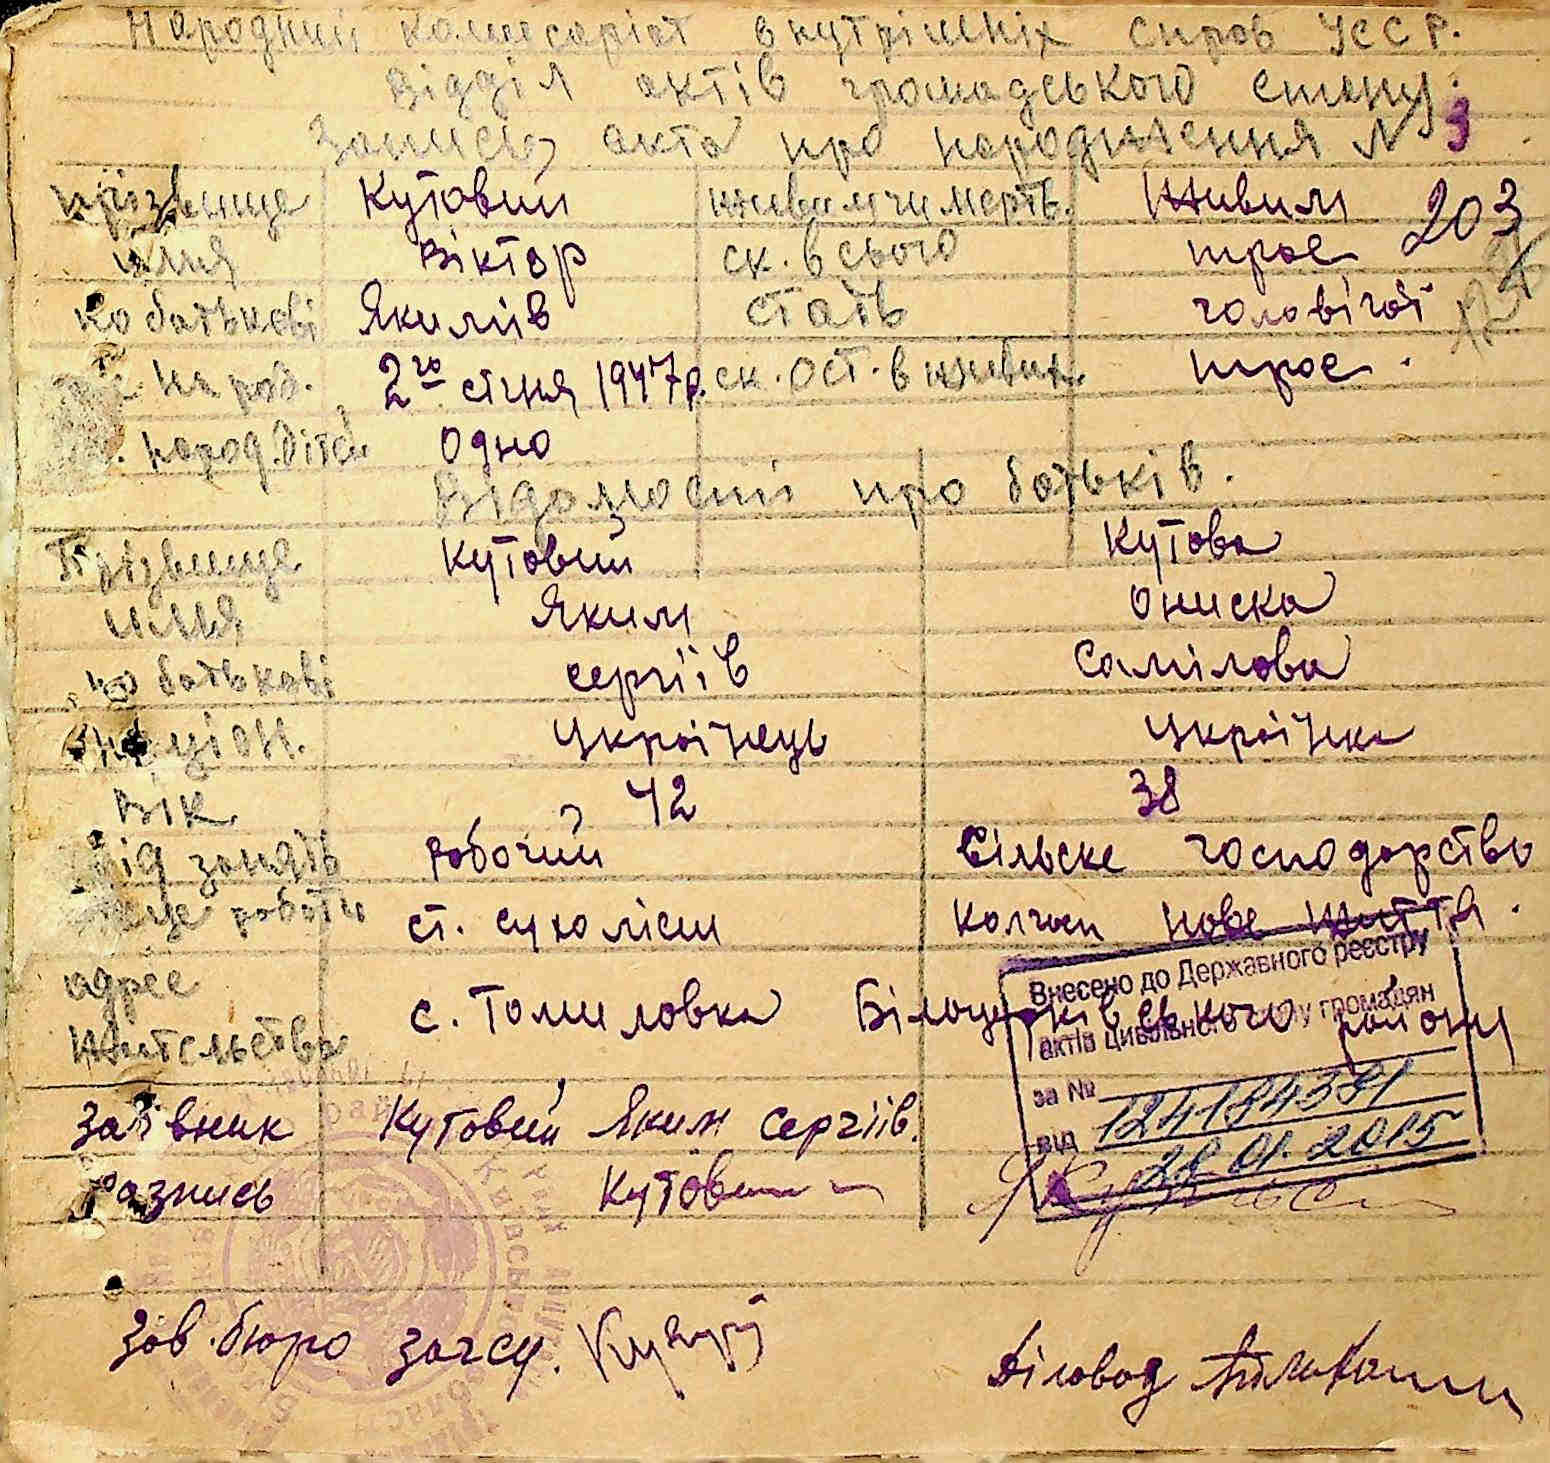 Народний комісаріат внутрішніх справ УССР.
Відділ актів громадського стану.
Запись акта про народження № 3
прізвище Кутовий живим чи мертв. Живим 203
имья Віктор ск. всього троє
по батькові Якимів стать чоловічої
народ. 2го січня 1947р. ск. ост. в живих троє.
народ. дітей одно
Відомости про батьків.
Прізвище Кутовий Кутова
имья Яким Ониска
по батькові Сергіїв Самілова
націон. Українець Українка
вік 42 38
від занять робочий Сільске господарство
місце роботи ст. Сухоліси колгосп Нове Життя.
адрес с. Томиловка Білоцерківського району
жительства
Внесено до Державного реєстру
актів цивільного стану громадян
за № 124184381
від 28.01.2015
заявник Кутовий Яким Сергіїв.
Розпись Кутовий
Зав. бюро загсу.
Діловод